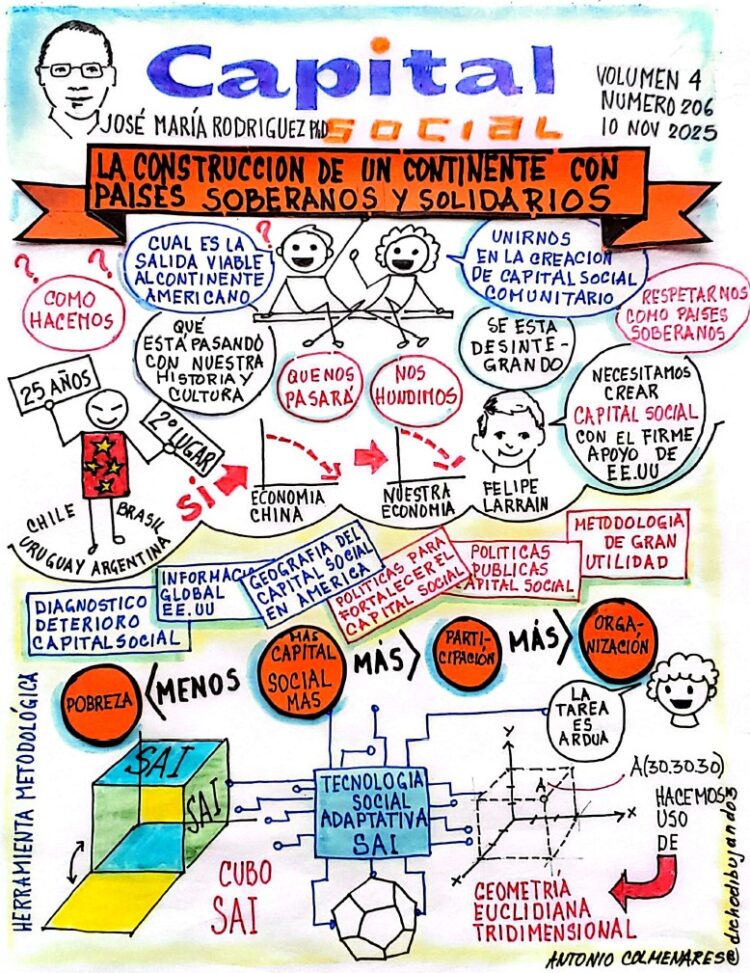 Capital
social
JOSÉ MARÍA RODRIGUEZ PhD
VOLUMEN 4
NUMERO 206
10 NOV 2025
LA CONSTRUCCION DE UN CONTINENTE CON
PAISES SOBERANOS Y SOLIDARIOS
? ? ?
COMO
HACEMOS
CUAL ES LA
SALIDA VIABLE
AL CONTINENTE
AMERICANO
UNIRNOS
EN LA CREACION
DE CAPITAL SOCIAL
COMUNITARIO
RESPETARNOS
COMO PAISES
SOBERANOS
QUÉ
ESTÁ PASANDO
CON NUESTRA
HISTORIA Y
CULTURA
QUE NOS
PASARÁ
NOS
HUNDIMOS
SE ESTA
DESINTE-
GRANDO
NECESITAMOS
CREAR
CAPITAL SOCIAL
CON EL FIRME
APOYO DE
EE.UU
25 AÑOS
2º LUGAR
CHILE BRASIL
URUGUAY ARGENTINA
SI
ECONOMIA
CHINA
NUESTRA
ECONOMIA
FELIPE
LARRAIN
DIAGNOSTICO
DETERIORO
CAPITAL SOCIAL
INFORMACI
GLOBAL
EE.UU
GEOGRAFIA DEL
CAPITAL SOCIAL
EN AMERICA
POLITICAS PARA
FORTALECER EL
CAPITAL SOCIAL
POLITICAS
PUBLICAS
CAPITAL SOCIAL
METODOLOGIA
DE GRAN
UTILIDAD
POBREZA
< MENOS
MAS
CAPITAL
SOCIAL
MAS
MÁS >
PARTI-
CIPACIÓN
MÁS >
ORGA-
NIZACIÓN
LA
TAREA
ES
ARDUA
HERRAMIENTA METODOLÓGICA
SAI
SAI
CUBO
SAI
TECNOLOGIA
SOCIAL
ADAPTATIVA
SAI
Y
A
X
X
A(30.30.30)
HACEMOS
USO
DE
GEOMETRÍA
EUCLIDIANA
TRIDIMENSIONAL
ANTONIO COLMENARES@dichodibujando3